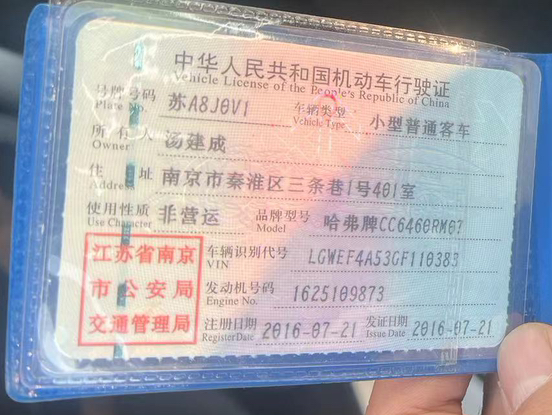 中华人民共和国机动车行驶证
Vehicle License of the People's Republic of China
号牌号码 苏A8J0V1 车辆类型 小型普通客车
Plate No. Vehicle Type
所有人 汤建成
Owner
住址 南京市秦淮区三条巷1号401室
Address
使用性质 非营运 品牌型号 哈弗牌CC6460RM07
Use Character Model
江苏省南京
市公安局
交通管理局
车辆识别代号 LGWEF4A53GF110383
VIN
发动机号码 1625109873
Engine No.
注册日期 2016-07-21 发证日期 2016-07-21
Register Date Issue Date